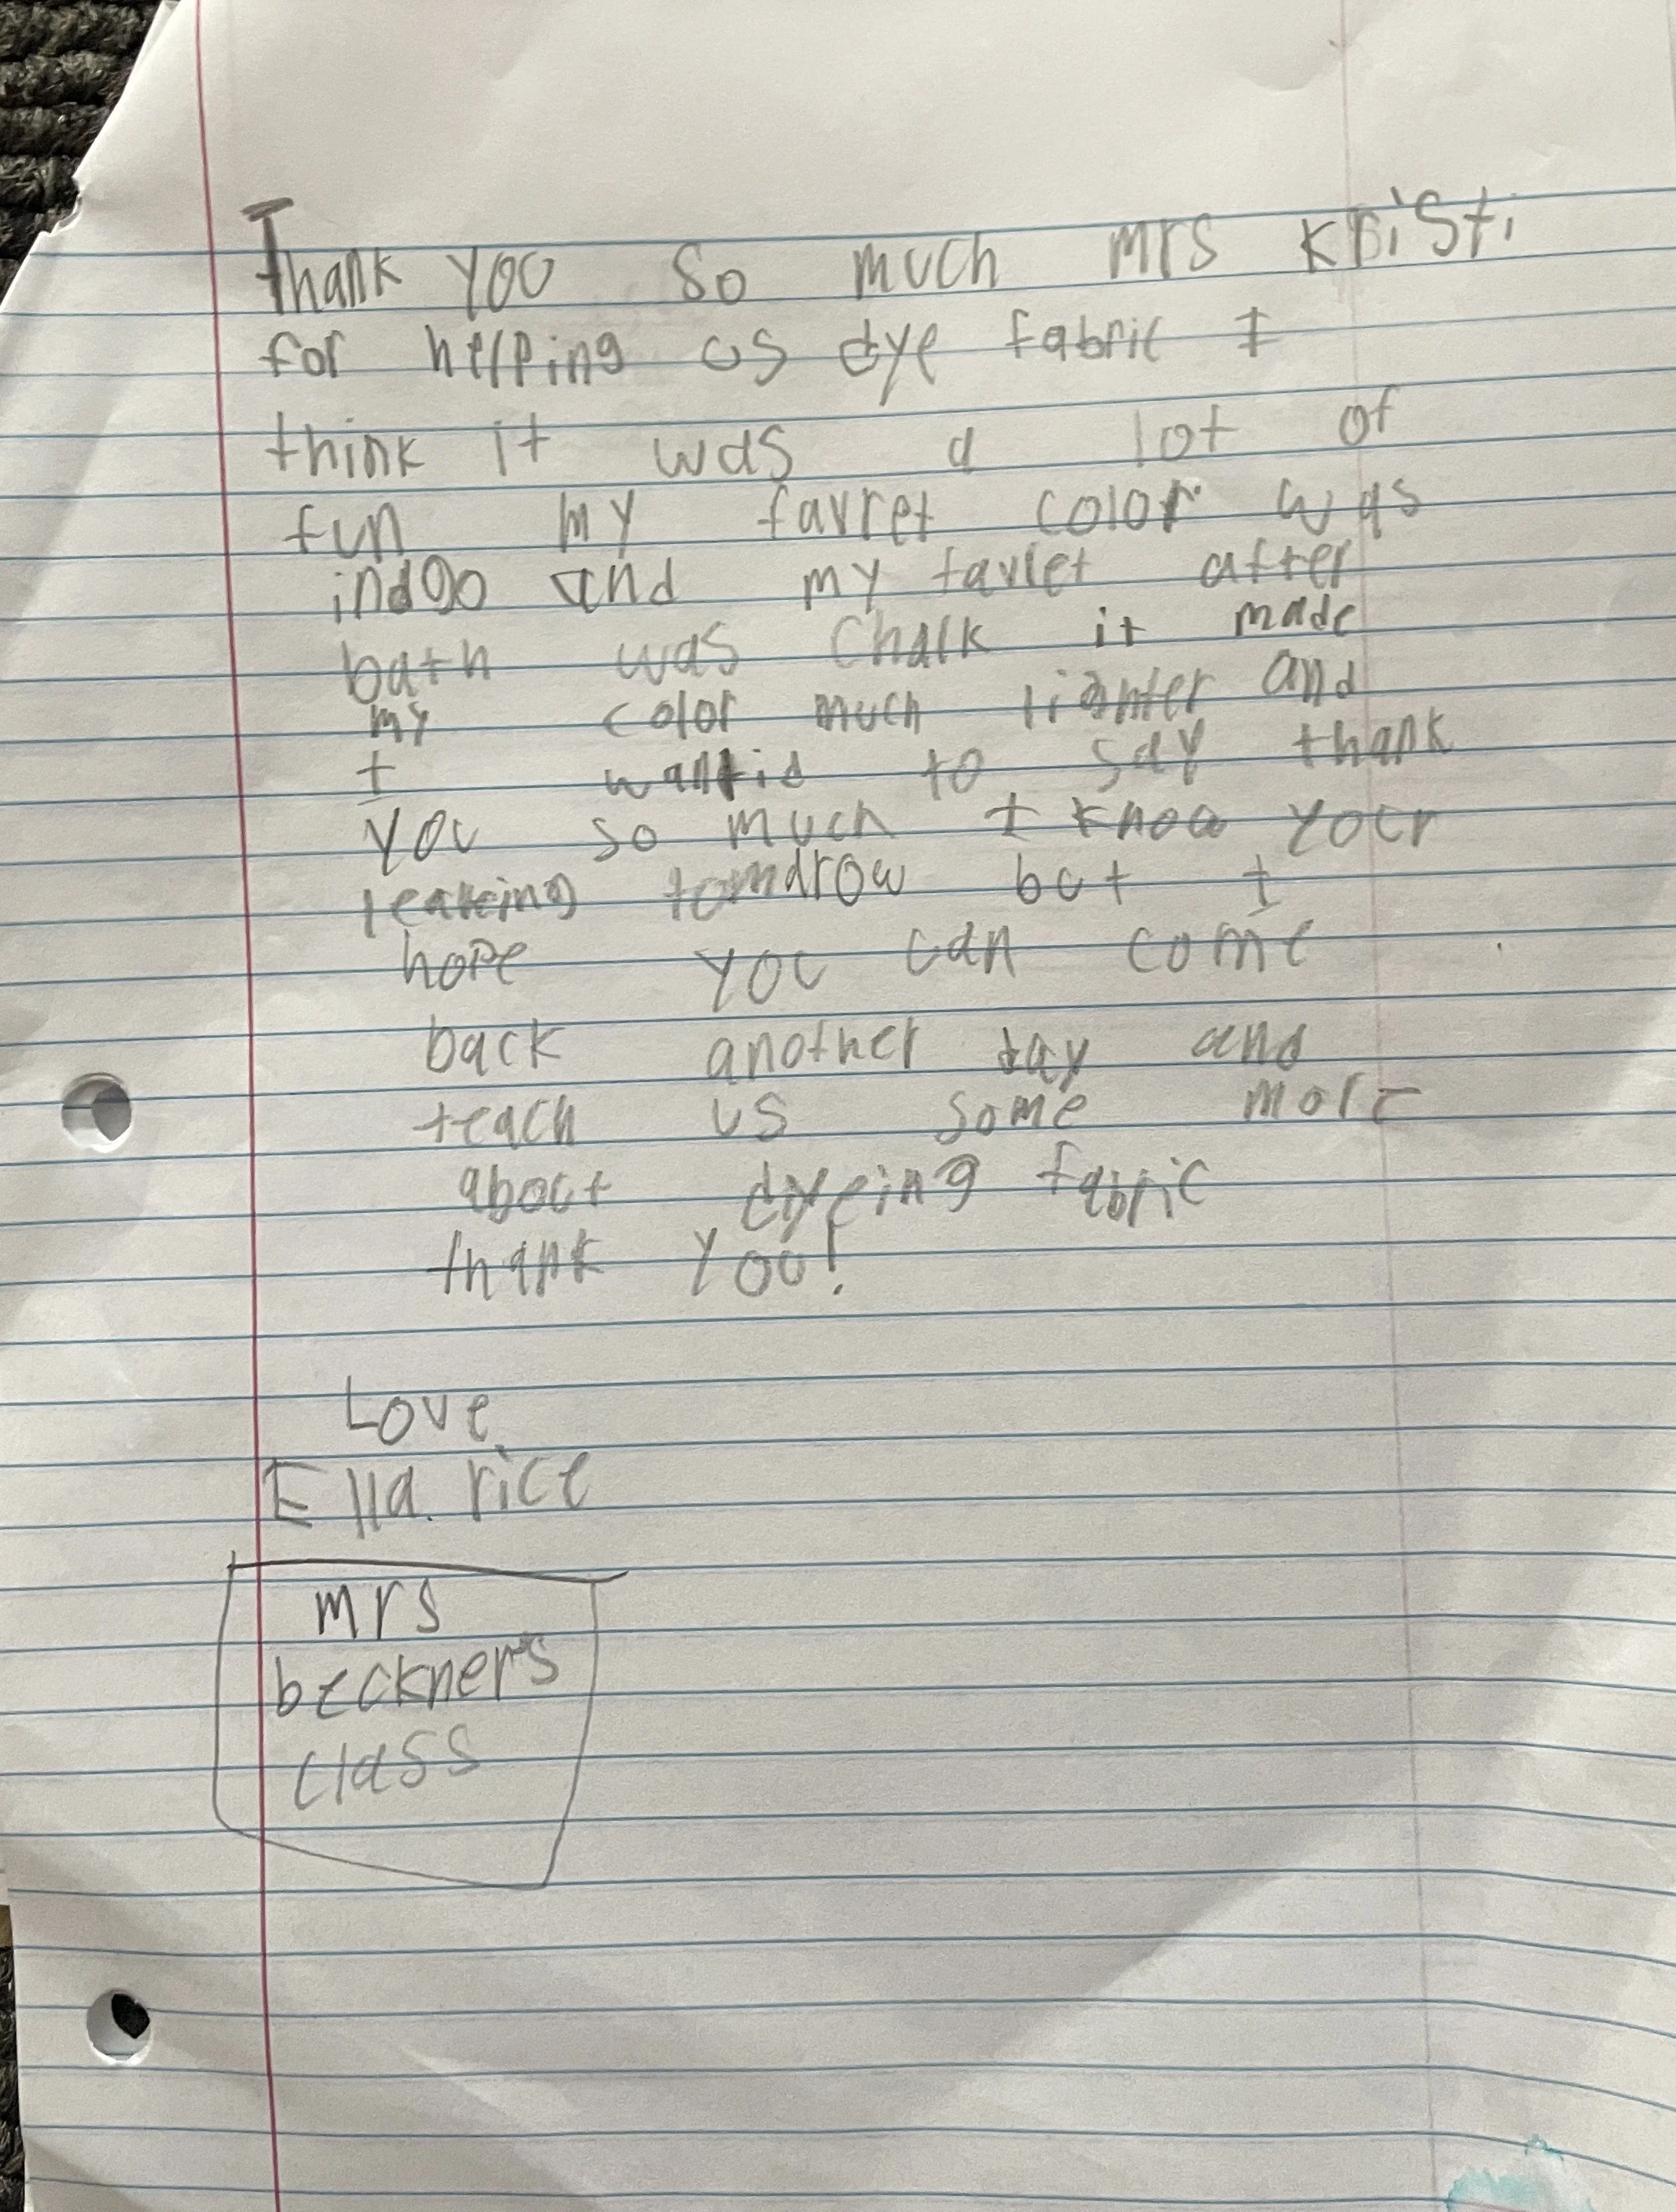 Thank you so much mrs kristi
for helping us dye fabric I
think it was a lot of
fun my favret color was
indgo and my favret after
bath was Chalk it made
my color much lighter and
I wantid to say thank
you so much I know your
leaveing tomarow but I
hope you can come
back another day and
teach us some more
about dyeing fabric
thank you!
Love
Ella. rice
mrs
beckner's
class